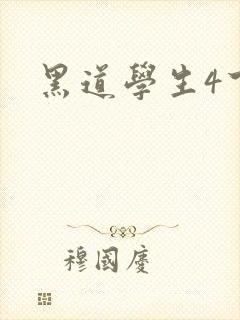 黑道學生4
穆國慶